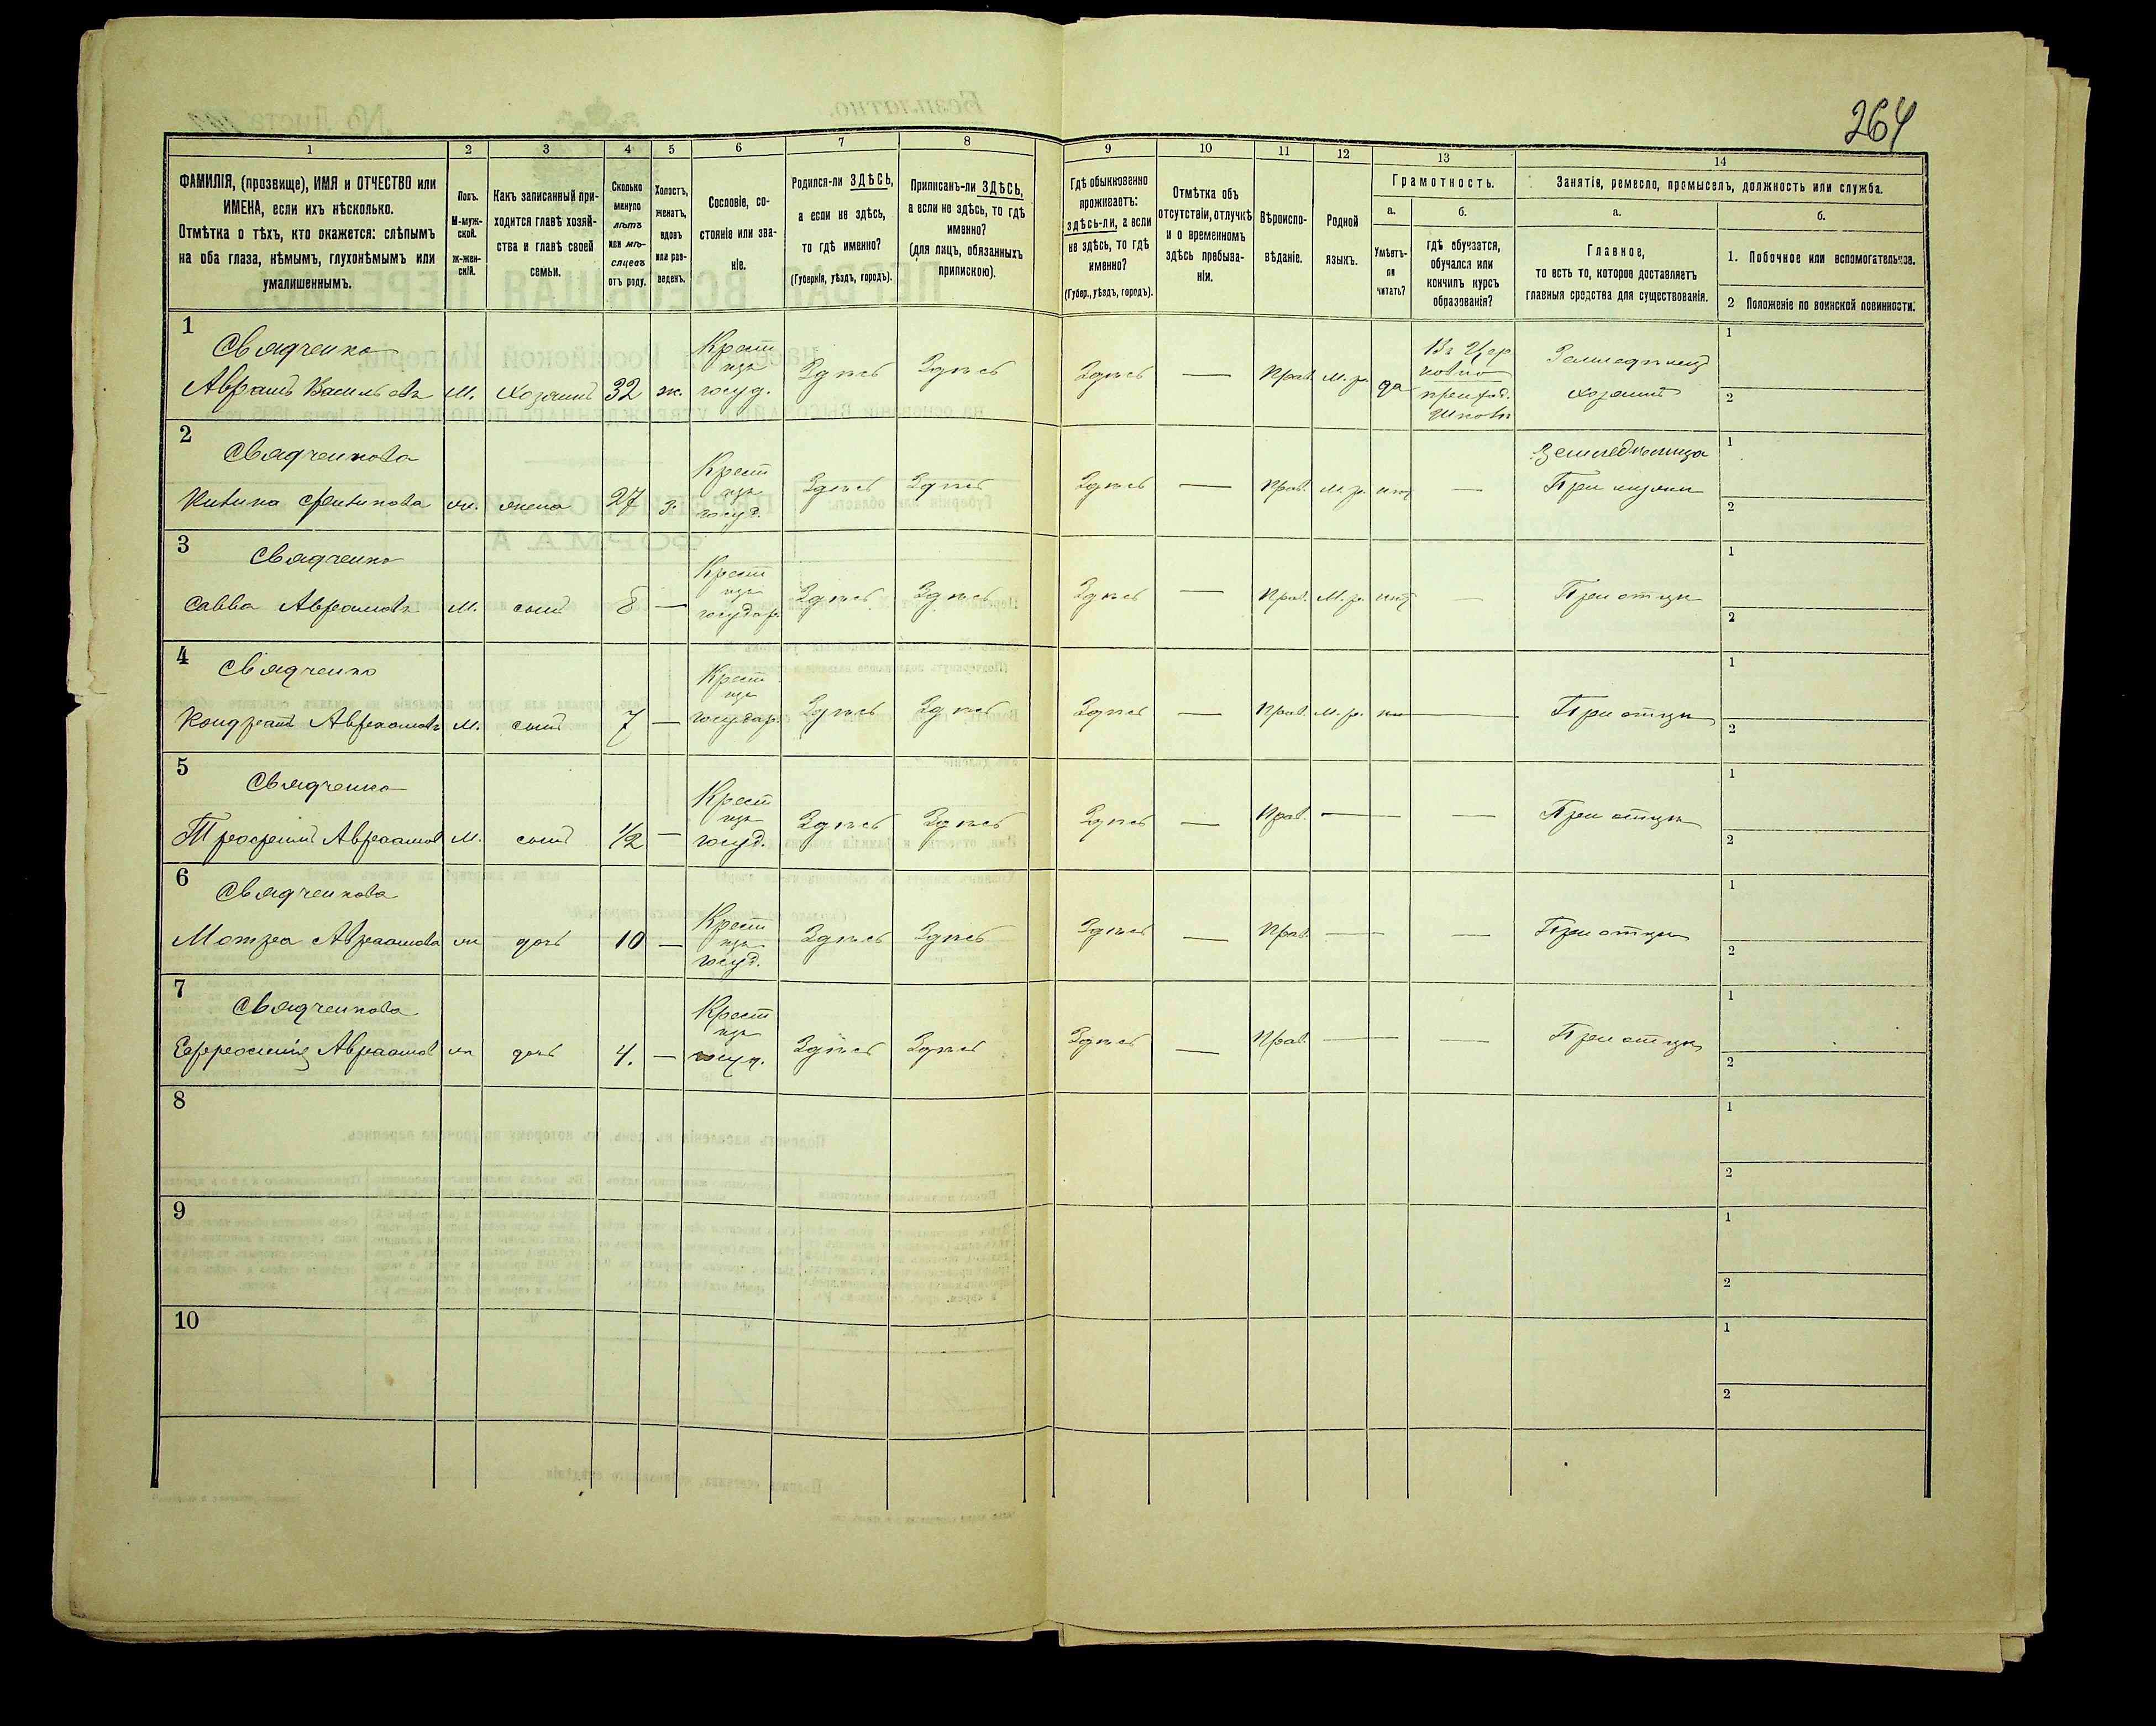 264
1 2 3 4 5 6 7 8 9 10 11 12 13 14
ФАМИЛІЯ, (прозвище), ИМЯ и ОТЧЕСТВО или
ИМЕНА, если ихъ нѣсколько.
Отмѣтка о тѣхъ, кто окажется: слѣпымъ
на оба глаза, нѣмымъ, глухонѣмымъ или
умалишеннымъ.
Полъ.
М-муж-
ской.
Ж-жен-
скій.
Какъ записанный при-
ходится главѣ хозяй-
ства и главѣ своей
семьи.
Сколько
минуло
лѣтъ
или мѣ-
сяцевъ
отъ роду.
Холостъ,
женатъ,
вдовъ
или раз-
веденъ.
Сословіе, со-
стояніе или зва-
ніе.
Родился-ли ЗДѢСЬ,
а если не здѣсь,
то гдѣ именно?
(Губернія, уѣздъ, городъ).
Приписанъ-ли ЗДѢСЬ,
а если не здѣсь, то гдѣ
именно?
(для лицъ, обязанныхъ
припискою).
Гдѣ обыкновенно
проживаетъ:
здѣсь-ли, а если
не здѣсь, то гдѣ
именно?
(Губер., уѣздъ, городъ).
Отмѣтка объ
отсутствіи, отлучкѣ
и о временномъ
здѣсь пребыва-
ніи.
Вѣроиспо-
вѣданіе.
Родной
языкъ.
Грамотность.
а.
Умѣетъ-
ли
читать?
б.
гдѣ обучается,
обучался или
кончилъ курсъ
образованія?
Занятіе, ремесло, промыселъ, должность или служба.
а.
Главное,
то есть то, которое доставляетъ
главныя средства для существованія.
б.
1. Побочное или вспомогательное.
2 Положеніе по воинской повинности.
1
Свядченко
Аврамъ Васильевъ М. Хозяинъ 32 ж.
Крест
изъ
госуд.
Здѣсь Здѣсь Здѣсь — Прав. М. р. да
Въ Цер
ковно
приход.
Школѣ
Земледѣлецъ
хозяинъ
1
2
2
Свядченкова
ж. жена 27 з.
Крест
изъ
госуд.
Здѣсь Здѣсь Здѣсь — Прав. М. р. нѣт —
Земледѣлица
При мужѣ
1
2
3
Свядченко
Савва Аврамовъ М. сынъ 8 —
Крест
изъ
государ.
Здѣсь Здѣсь Здѣсь — Прав. М. р. нѣт — При отцѣ
1
2
4
Свядченко
Кондратъ Аврамовъ М. сынъ 7 —
Крест
изъ
государ.
Здѣсь Здѣсь Здѣсь — Прав. М. р. — При отцѣ
1
2
5
Свядченко
Трофимъ Аврамов М. сынъ 1/2 —
Крест
изъ
госуд.
Здѣсь Здѣсь Здѣсь — Прав. — — При отцѣ
1
2
6
Свядченкова
Мотря Аврамова ж дочь 10 —
Крест
изъ
госуд.
Здѣсь Здѣсь Здѣсь — Прав. — — При отцѣ
1
2
7
Свядченкова
Ефросинія Аврамов ж дочь 4. —
Крест
изъ
госуд.
Здѣсь Здѣсь Здѣсь — Прав. — — При отцѣ
1
2
8
1
2
9
1
2
10
1
2